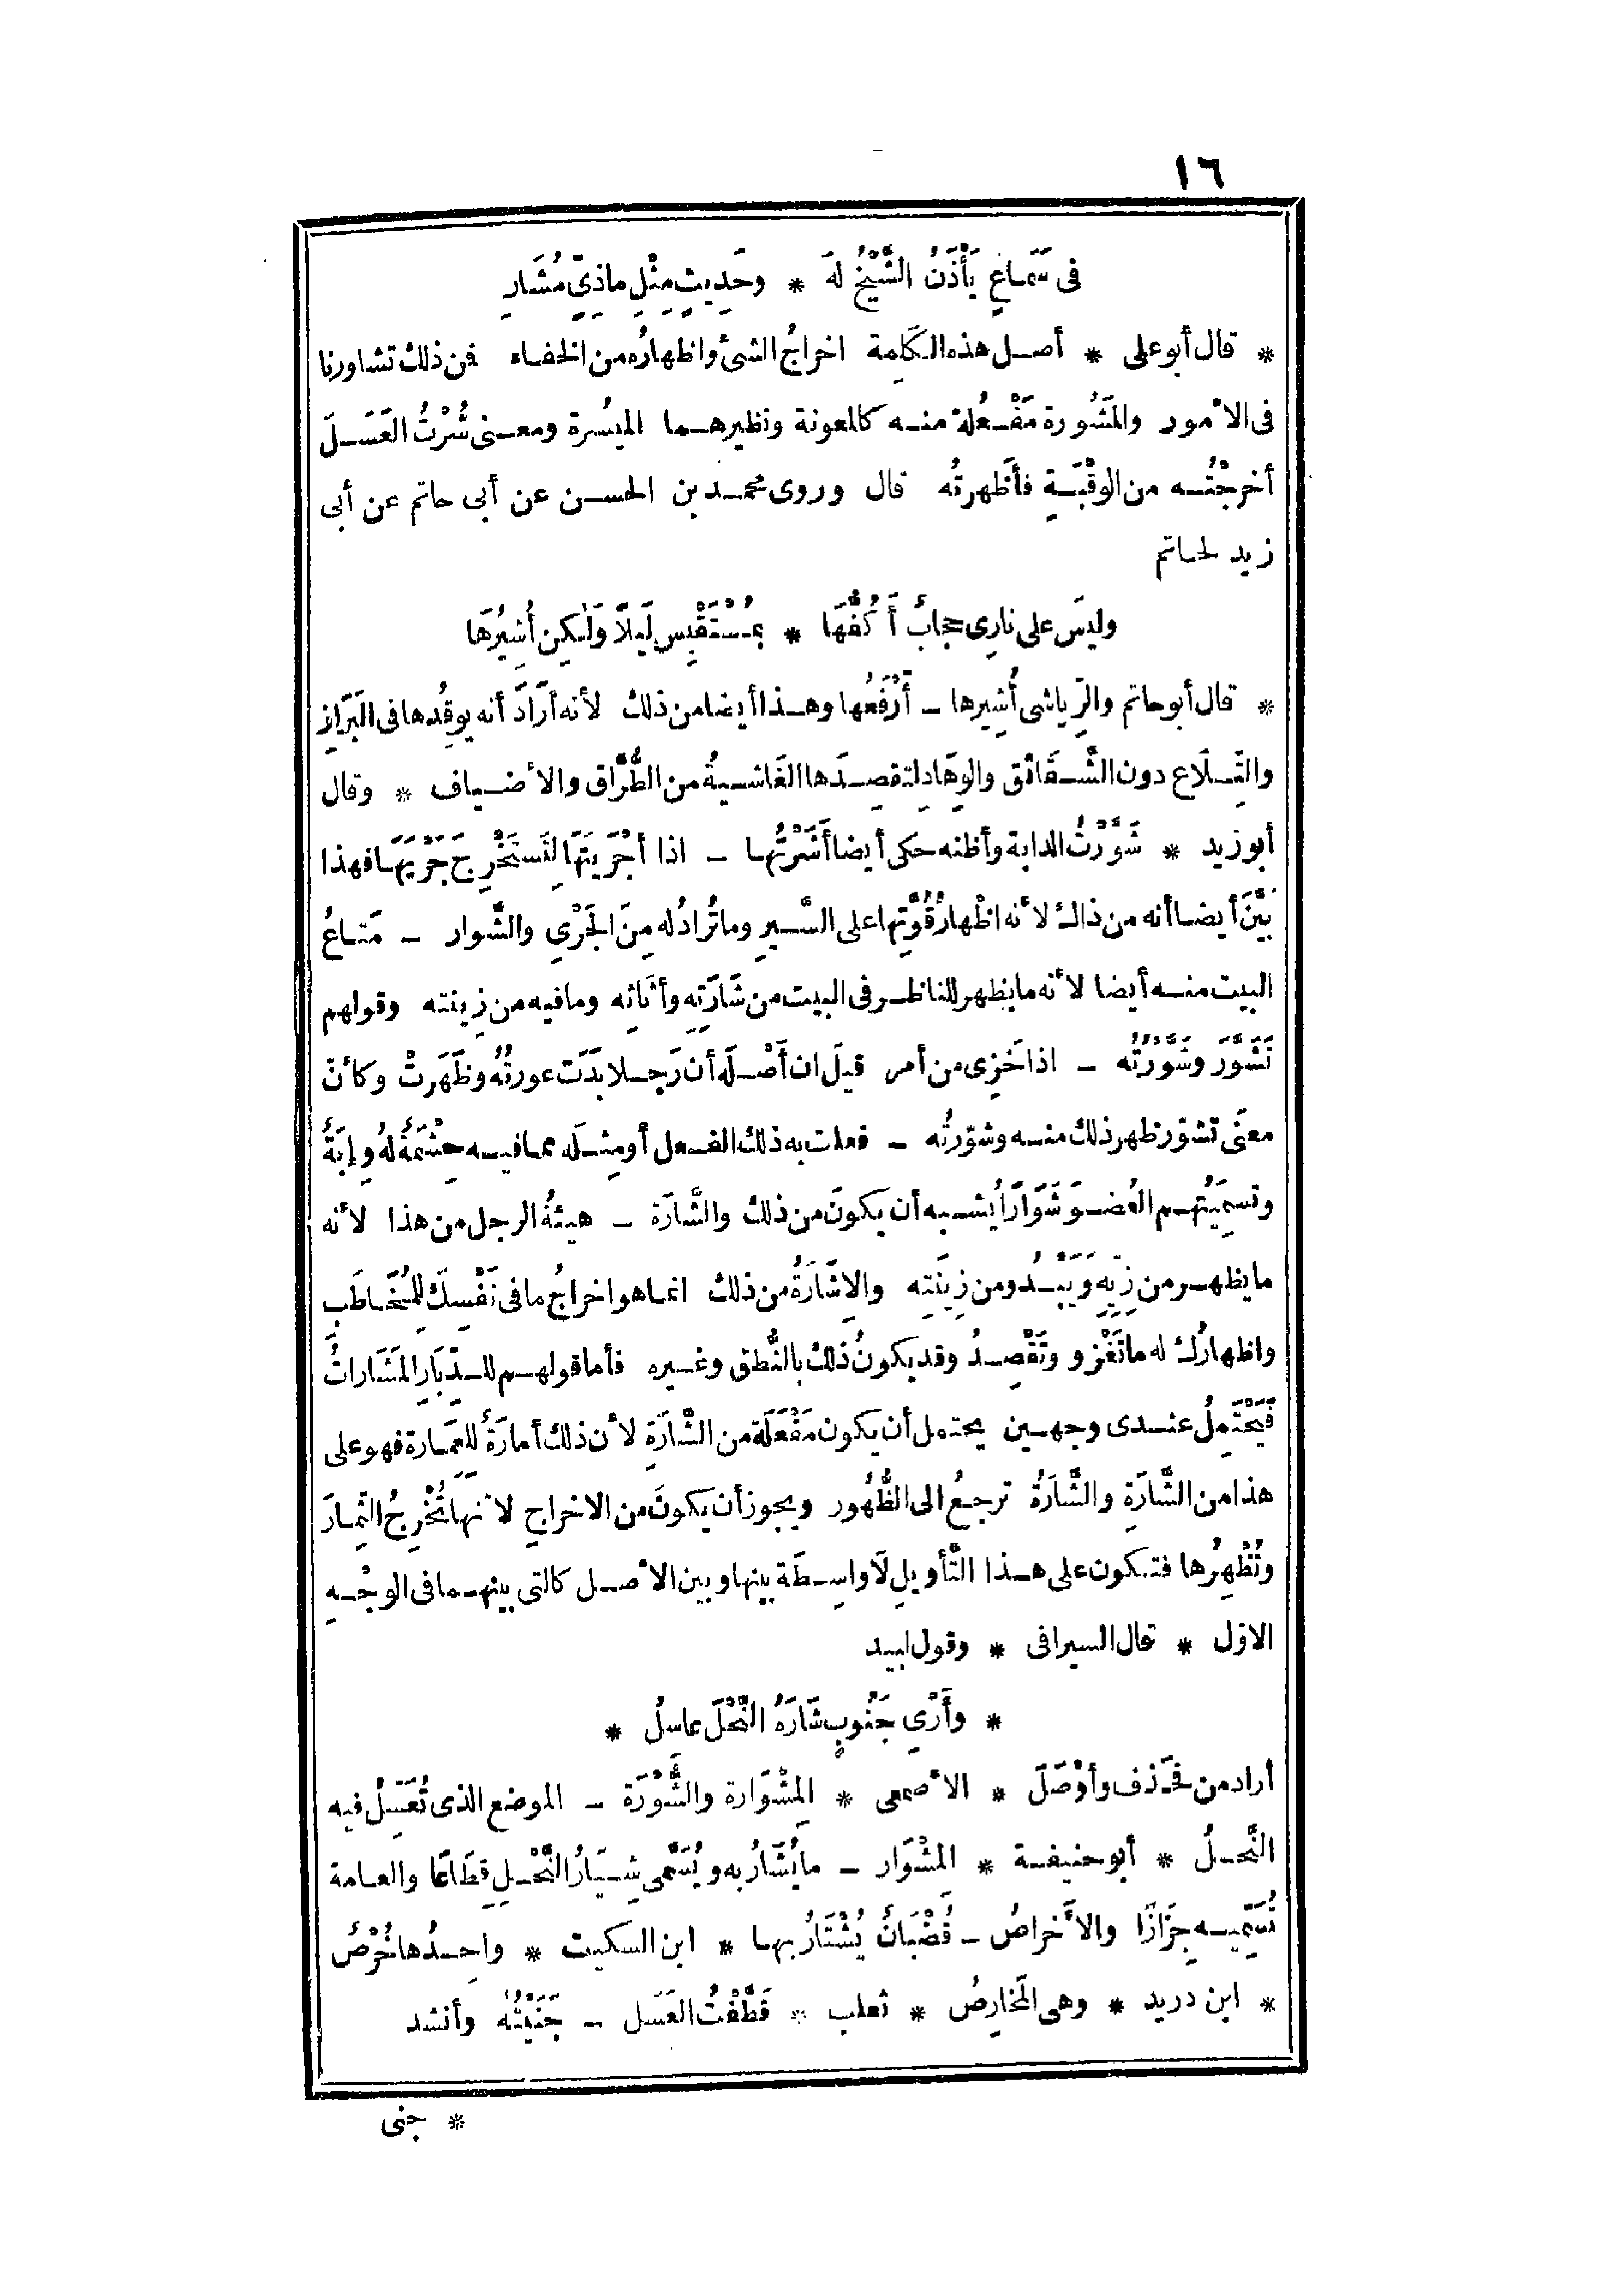 ١٦
فى سَمَاعٍ يَأْذَنُ الشَّيْخُ لهَ * وحَدِيثٍ مِثْلِ ماذِىٍّ مُشَارِ
* قال أبو على * أصل هذه الكَلِمة اخراجُ الشئ واظهارُه من الخفاء فمن ذلك تشاورنا
فى الأمور والمَشُورة مَفْعُلة منه كالمعونة ونظيرهما الميسُرة ومعنى شُرْتُ العَسَلَ
أخرجْتُه من الوقْبَةِ فأظهرتُه قال وروى محمد بن الحسن عن أبى حاتم عن أبى
زيد لحاتم
وليسَ على نارِى حجابٌ أَكُفُّهَا * بمُسْتَقْبِس لَيلًا وَلٰكِن أُشِيرُهَا
* قال أبو حاتم والرِّياشى أُشِيرها - أَرْفَعُها وهذا أيضا من ذلك لأنه أرَادَ أنه يوقِدُها فى البَرَازِ
والتِّلَاع دون الشَّقَائق والوِهَادِ لتقصِدَها الغَاشيةُ من الطُّرَّاق والأضياف * وقال
أبو زيد * شَوَّرْتُ الدابة وأظنه حكى أيضا أَشَرْتُها - اذا أجْرَيتَها لِتَستَخْرِجَ جَرْيَهَا فهذا
بَيَّنَ أيضا أنه من ذاك لأنه اظْهارُ قُوَّتِها على السَّيرِ وما تُرادُ له مِنَ الجَرْىِ والشَّوار - مَتاعُ
البيت منه أيضا لأنه ما يظهر للناظر فى البيت من شَارَتِه وأثَاثِه وما فيه من زِينته وقولهم
تَشَوَّرَ وشَوَّرْتُه - اذا خَزِىَ من أمر قيلَ ان أَصْلَه أن رَجلا بَدَت عورتُهُ وظَهَرتْ وكأنّ
معنَى تشوّر ظهر ذلك منه وشوّرتُه - فعلت به ذلك الفعل أو مِثلَه مما فيه حِشْمَةٌ لهُ وإبَةٌ
وتسمِيَتُهم العُضوَ شَوَارًا يُشبه أن يكونَ من ذلك والشَّارَة - هيئةُ الرجل من هذا لأنه
ما يظهر من زِيِّهِ وَيَبْدُو من زِينَتِه والاِشَارَةُ من ذلك انما هو اخراجُ ما فى نَفْسِكَ لِلمُخَاطَبِ
واظهارُكَ له ما تَغْزو وتَقْصِدُ وقد يكونُ ذلك بالنُّطق وغيره فأما قولهم للدِّبَارِ المَشَاراتُ
فَيَحْتَمِلُ عندى وجهين يحتمل أن يكون مَفْعَلَة من الشَّارَةِ لأن ذلك أمارَةٌ للعِمَارة فهو على
هذا من الشَّارَةِ والشَّارَةُ ترجعُ الى الظُّهُور ويجوز أن يكونَ من الاخراجِ لأنها تُخْرِجُ الثِّمارَ
وتُظْهِرُها فتكون على هذا التَّأويلِ لَا واسِطَة بينها وبين الأصل كالتى بينهما فى الوجْهِ
الاوّل * قال السيرافى * وقول لبيد
* وأَرْىِ جَنُوبٍ شَارَهُ النَّحْلَ عاسلُ *
أراد من فحذف وأوْصَلَ * الأصمعى * المِشْوَارة والشُّورَة - الموضع الذى تُعَسِّلُ فيه
النَّحلُ * أبو حنيفة * المِشْوَار - ما يُشَارُ به ويُسَمَّى شِيَارُ النَّحْلِ قِطَاعًا والعامة
تُسَمِّيه جَزَازًا والأَخراصُ - قُضْبَانٌ يُشْتَارُ بها * ابن السكيت * واحِدُها خُرْصٌ
* ابن دريد * وهى المَخَارِصُ * ثعلب * قَطَّفْتُ العَسَل - جَنَيْتُهُ وأنشد
* جنى